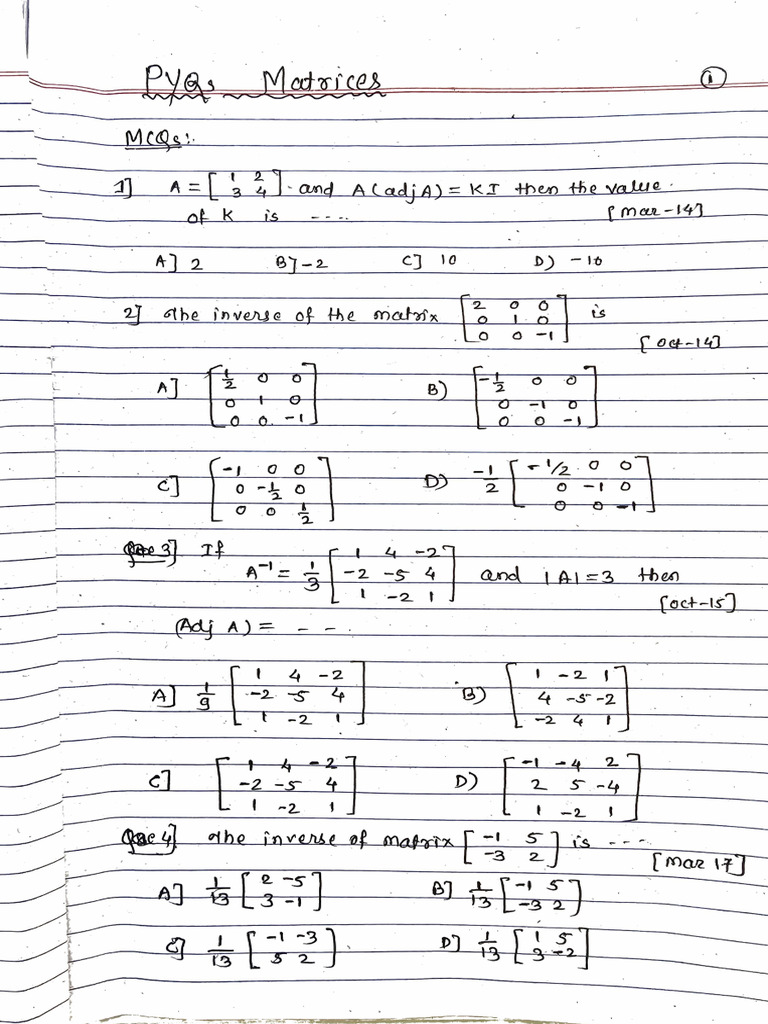 PYQs Matrices
①
MCQs:
1] A = [ 1 2 ; 3 4 ] . and A(adj A) = KI then the value
of K is .... [Mar-14]
A] 2 B] -2 C] 10 D) -10
2] The inverse of the matrix [ 2 0 0 ; 0 1 0 ; 0 0 -1 ] is
[Oct-14]
A] [ 1/2 0 0 ; 0 1 0 ; 0 0 -1 ] B) [ -1/2 0 0 ; 0 -1 0 ; 0 0 -1 ]
C] [ -1 0 0 ; 0 -1/2 0 ; 0 0 1/2 ] D) -1/2 [ -1/2 0 0 ; 0 -1 0 ; 0 0 -1 ]
3] If A⁻¹ = 1/3 [ 1 4 -2 ; -2 -5 4 ; 1 -2 1 ] and |A| = 3 then
[Oct-15]
(Adj A) = - - .
A] 1/9 [ 1 4 -2 ; -2 -5 4 ; 1 -2 1 ] B) [ 1 -2 1 ; 4 -5 -2 ; -2 4 1 ]
C] [ 1 4 -2 ; -2 -5 4 ; 1 -2 1 ] D) [ -1 -4 2 ; 2 5 -4 ; 1 -2 1 ]
4] The inverse of matrix [ -1 5 ; -3 2 ] is ---
[Mar 17]
A] 1/13 [ 2 -5 ; 3 -1 ] B] 1/13 [ -1 5 ; -3 2 ]
C] 1/13 [ -1 -3 ; 5 2 ] D] 1/13 [ 1 5 ; 3 -2 ]